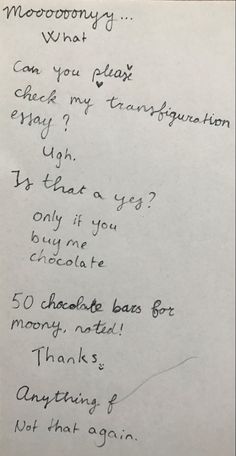 Moooooonyy...
What
Can you please
check my transfiguration
essay?
Ugh.
Is that a yes?
only if you
buy me
chocolate
50 chocolate bars for
moony, noted!
Thanks.
Anything f
Not that again.